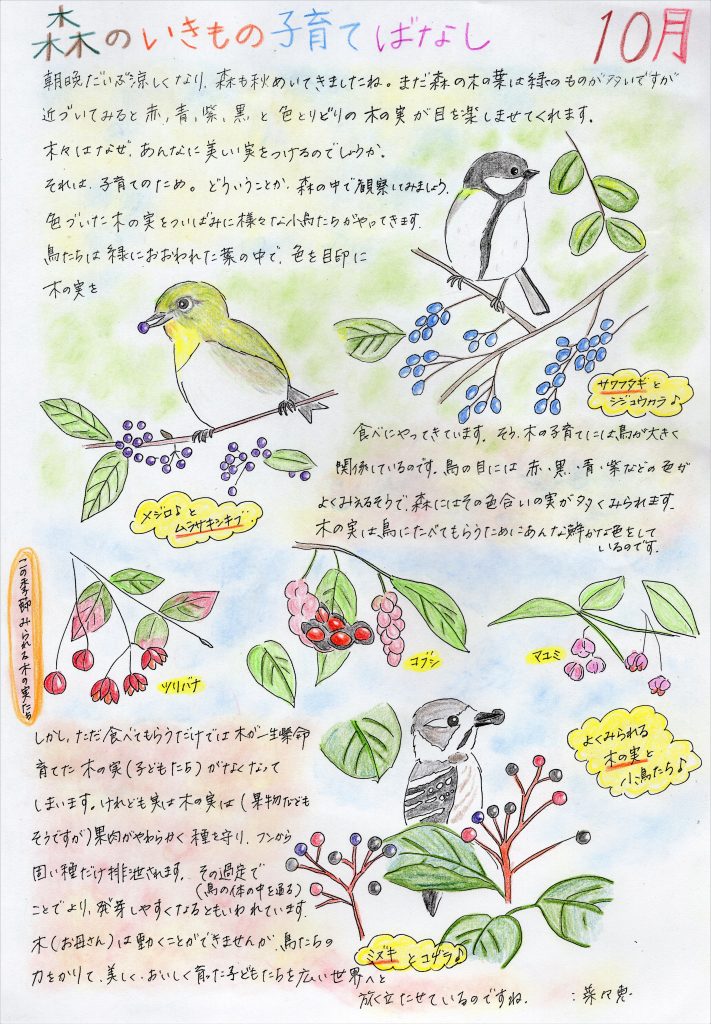 森のいきもの子育てばなし 10月
朝晩だいぶ涼しくなり、森も秋めいてきましたね。まだ森の木の葉は緑のものが多いですが
近づいてみると 赤、青、紫、黒 と 色とりどりの 木の実 が 目を楽しませてくれます。
木々はなぜ、あんなに美しい実をつけるのでしょうか。
それは、子育てのため。どういうことか、森の中で観察してみましょう。
色づいた木の実をついばみに様々な小鳥たちがやってきます。
鳥たちは緑におおわれた葉の中で、色を目印に
木の実を
サワフタギと
シジュウカラ♪
食べにやってきています。そう、木の子育てには鳥が大きく
関係しているのです。鳥の目には 赤・黒・青・紫などの色が
よくみえるそうで、森にはその色合いの実が多くみられます。
木の実は鳥にたべてもらうためにあんな鮮かな色をして
いるのです。
メジロ♪と
ムラサキシキブ
この季節みられる木の実たち
ツリバナ
コブシ
マユミ
よくみられる
木の実と
小鳥たち♪
しかし、ただ食べてもらうだけでは 木が一生懸命
育てた 木の実(子どもたち)がなくなって
しまいます。けれども実は 木の実は(果物なども
そうですが)果肉がやわらかく 種を守り、フンから
固い種だけ排泄されます。その過定で
(鳥の体の中を通る)
ことでより、発芽しやすくなるともいわれています。
木(お母さん)は動くことができませんが、鳥たちの
力をかりて、美しく、おいしく育った子どもたちを広い世界へと
旅立たせているのですね。
ミズキ とコゲラ♪